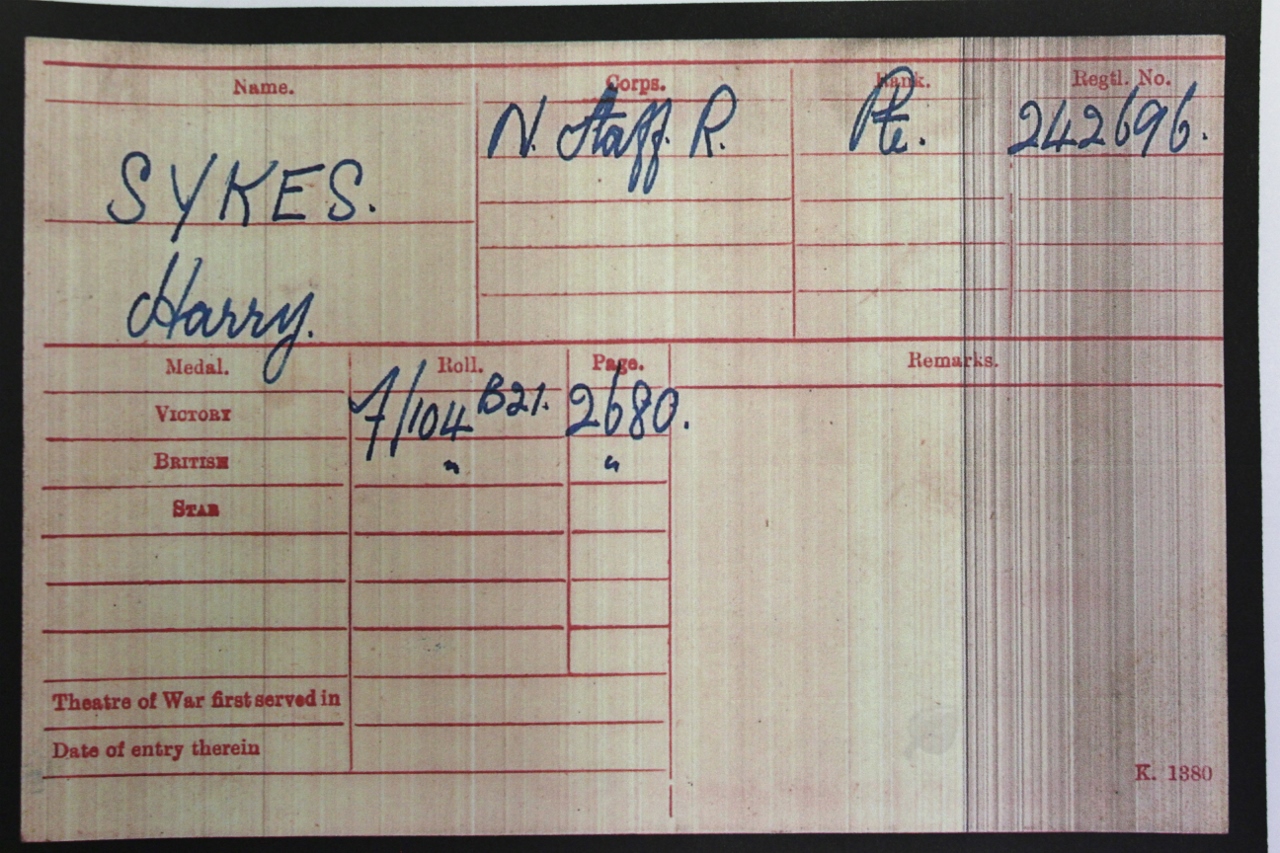 Name. Corps. Rank. Regtl. No.
N. Staff. R. Pte. 242696.
SYKES.
Harry.
Medal. Roll. Page. Remarks.
VICTORY 7/104 B21. 2680.
BRITISH " "
STAR
Theatre of War first served in
Date of entry therein
K. 1380